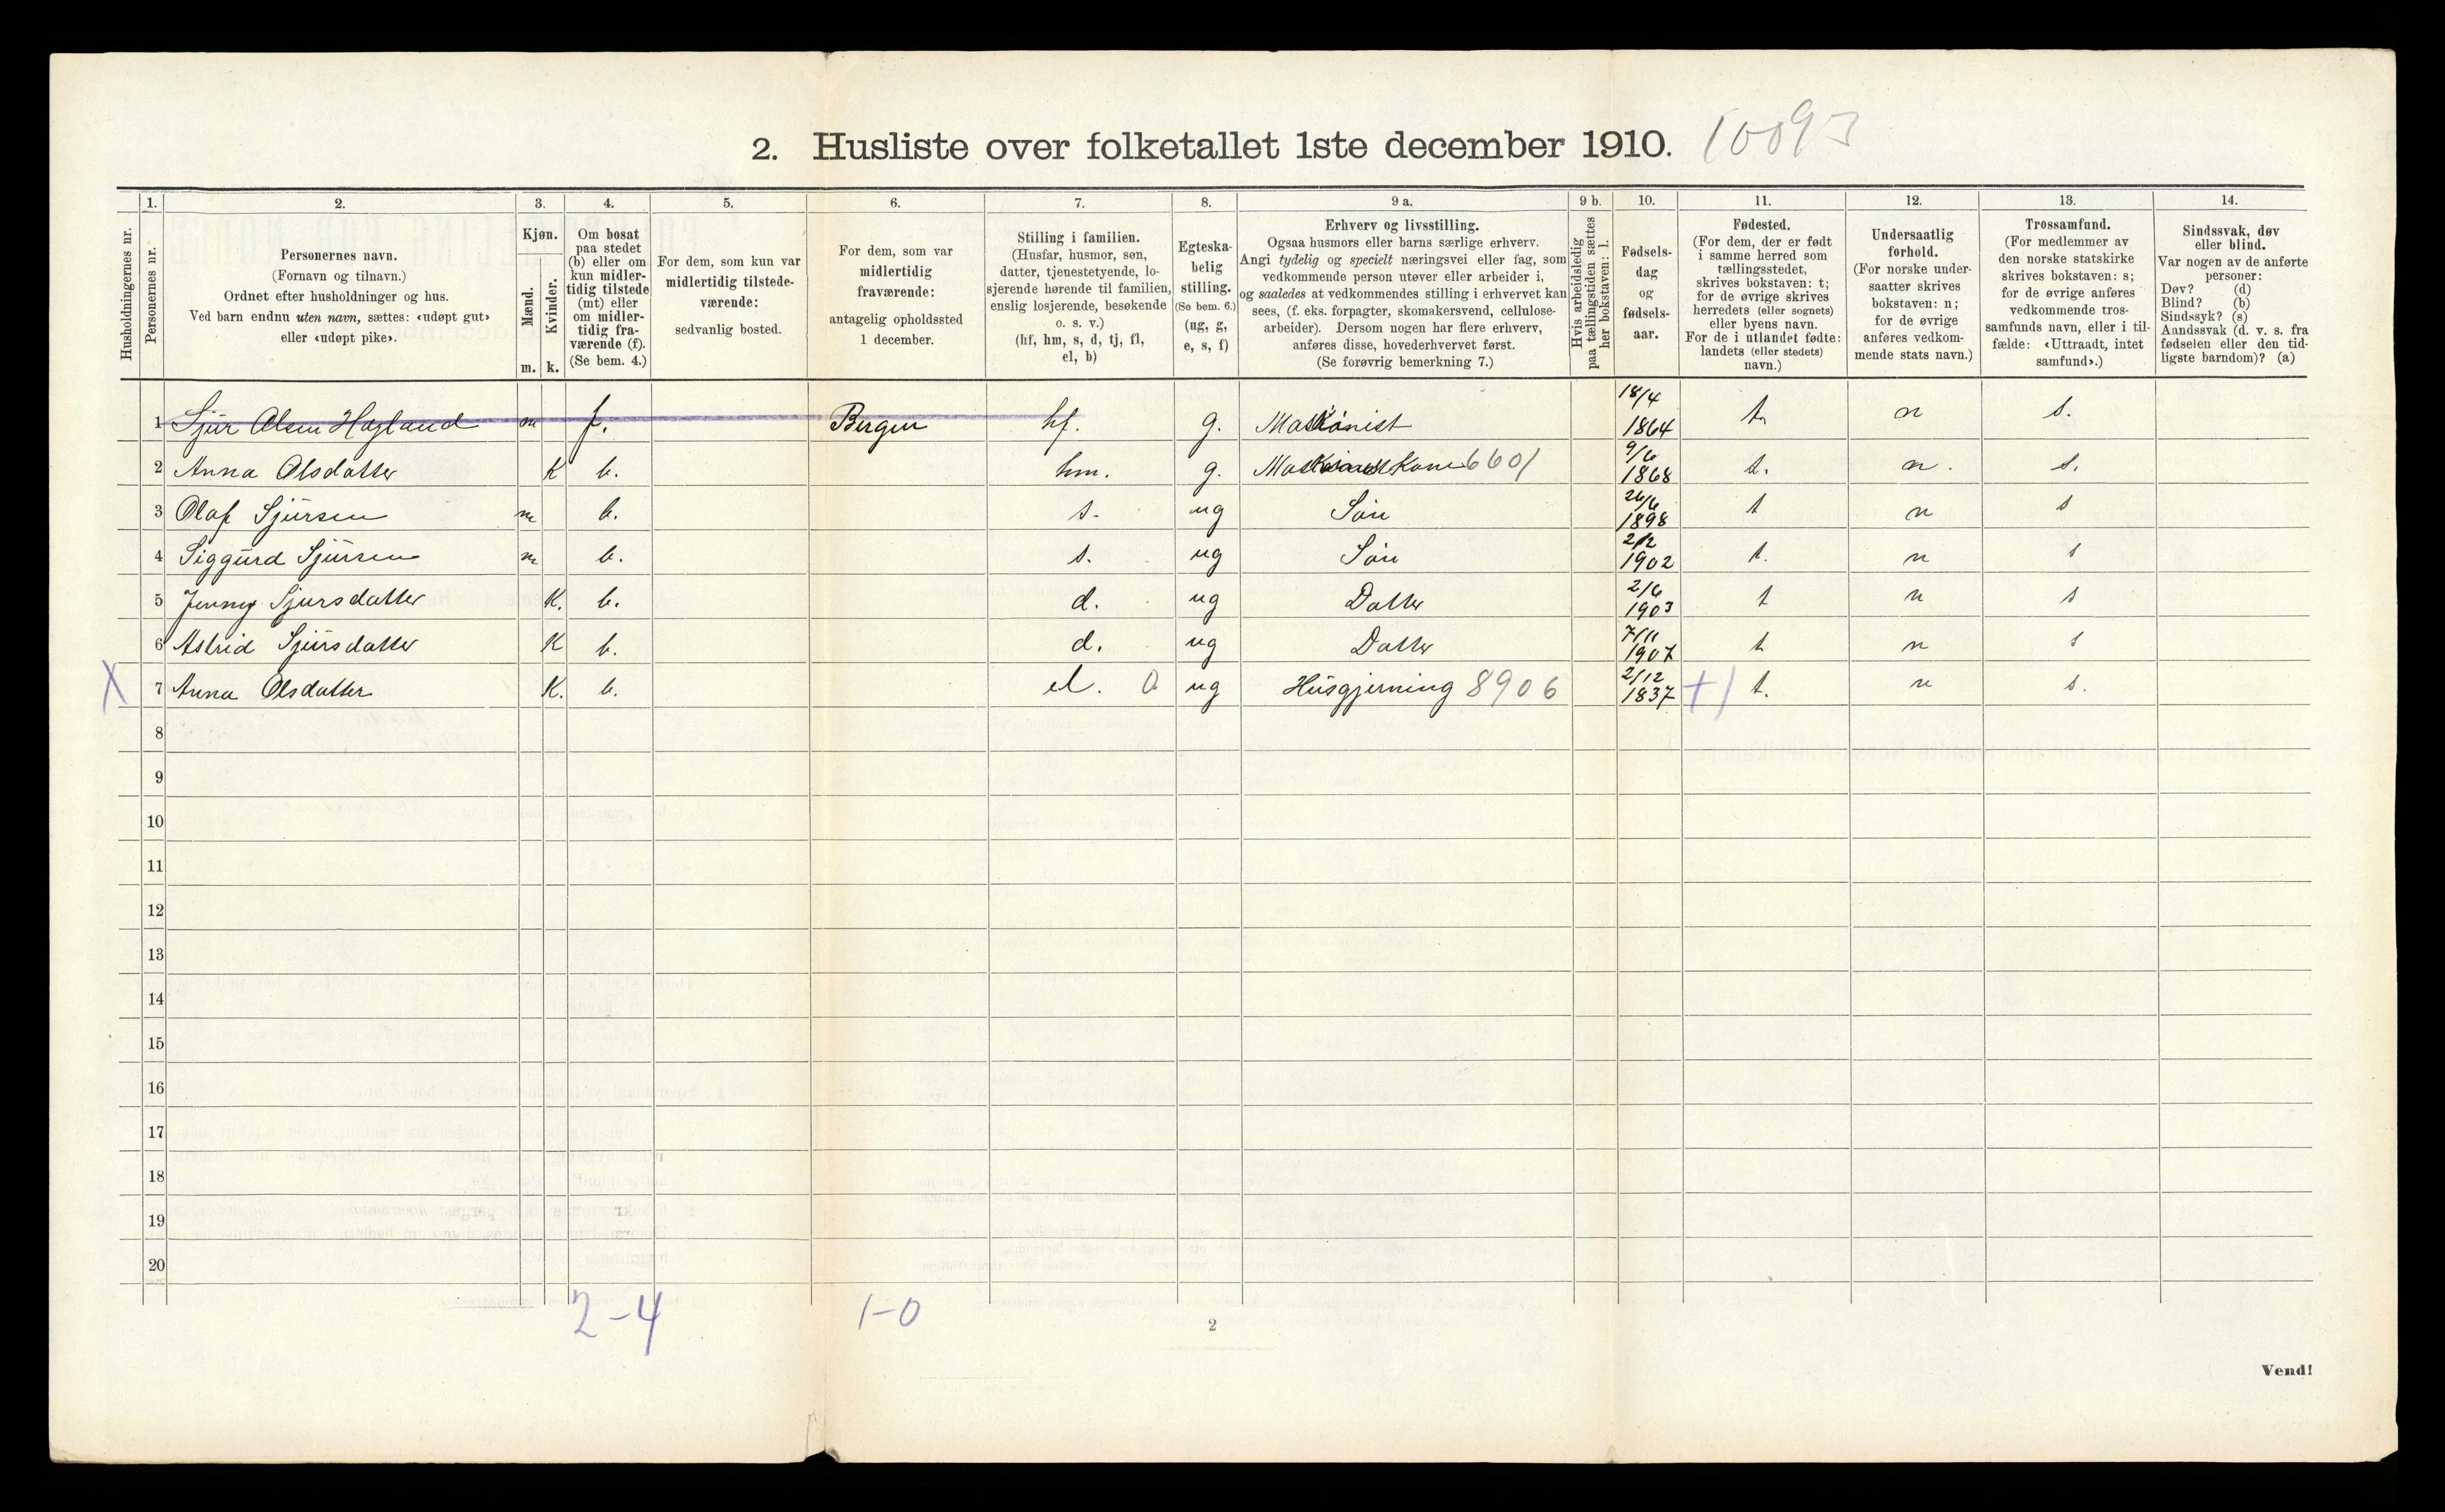 2. Husliste over folketallet 1ste december 1910. 10093
1. 2. 3. 4. 5. 6. 7. 8. 9 a. 9 b. 10. 11. 12. 13. 14.
Husholdningernes nr.
Personernes nr.
Personernes navn.
(Fornavn og tilnavn.)
Ordnet efter husholdninger og hus.
Ved barn endnu uten navn, sættes: «udøpt gut»
eller «udøpt pike».
Kjøn.
Mænd.
Kvinder.
m. k.
Om bosat
paa stedet
(b) eller om
kun midler-
tidig tilstede
(mt) eller
om midler-
tidig fra-
værende (f).
(Se bem. 4.)
For dem, som kun var
midlertidig tilstede-
værende:
sedvanlig bosted.
For dem, som var
midlertidig
fraværende:
antagelig opholdssted
1 december.
Stilling i familien.
(Husfar, husmor, søn,
datter, tjenestetyende, lo-
sjerende hørende til familien,
enslig losjerende, besøkende
o. s. v.)
(hf, hm, s, d, tj, fl,
el, b)
Egteska-
belig
stilling.
(Se bem. 6.)
(ug, g,
e, s, f)
Erhverv og livsstilling.
Ogsaa husmors eller barns særlige erhverv.
Angi tydelig og specielt næringsvei eller fag, som
vedkommende person utøver eller arbeider i,
og saaledes at vedkommendes stilling i erhvervet kan
sees, (f. eks. forpagter, skomakersvend, cellulose-
arbeider). Dersom nogen har flere erhverv,
anføres disse, hovederhvervet først.
(Se forøvrig bemerkning 7.)
Hvis arbeidsledig
paa tællingstiden sættes
her bokstaven: l.
Fødsels-
dag
og
fødsels-
aar.
Fødested.
(For dem, der er født
i samme herred som
tællingsstedet,
skrives bokstaven: t;
for de øvrige skrives
herredets (eller sognets)
eller byens navn.
For de i utlandet fødte:
landets (eller stedets)
navn.)
Undersaatlig
forhold.
(For norske under-
saatter skrives
bokstaven: n;
for de øvrige
anføres vedkom-
mende stats navn.)
Trossamfund.
(For medlemmer av
den norske statskirke
skrives bokstaven: s;
for de øvrige anføres
vedkommende tros-
samfunds navn, eller i til-
fælde: «Uttraadt, intet
samfund».)
Sindssvak, døv
eller blind.
Var nogen av de anførte
personer:
Døv? (d)
Blind? (b)
Sindssyk? (s)
Aandssvak (d. v. s. fra
fødselen eller den tid-
ligste barndom)? (a)
1 Sjur Olsen Hagland m f. Bergen hf. g. Maskinist 18/4 1864 t. n s.
2 Anna Olsdatter K b. hm. g. Kone 6601 9/6 1868 t. n. s.
3 Olaf Sjursen m b. s. ug Søn 26/6 1898 t n s
4 Siggurd Sjursen m b. s. ug Søn 2/2 1902 t. n s
5 Jenny Sjursdatter K. b. d. ug Datter 2/6 1903 t n s
6 Astrid Sjursdatter K b. d. ug Datter 7/11 1907 t n s
X 7 Anna Olsdatter K. b. el. 0 ug Husgjerning 8906 2/12 1837 +1 t. n s.
8
9
10
11
12
13
14
15
16
17
18
19
20
2-4 1-0
2
Vend!